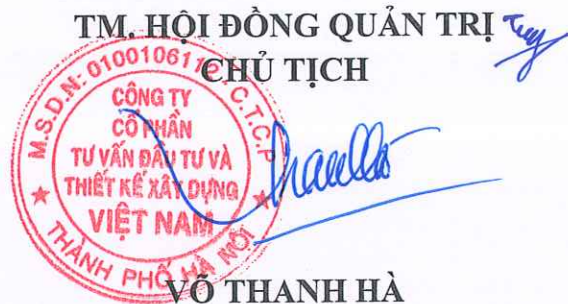 TM. HỘI ĐỒNG QUẢN TRỊ
CHỦ TỊCH
M.S.D.N: 0100106112 - C.T.C.P
CÔNG TY
CỔ PHẦN
TƯ VẤN ĐẦU TƯ VÀ
THIẾT KẾ XÂY DỰNG
VIỆT NAM
THÀNH PHỐ HÀ NỘI
VÕ THANH HÀ